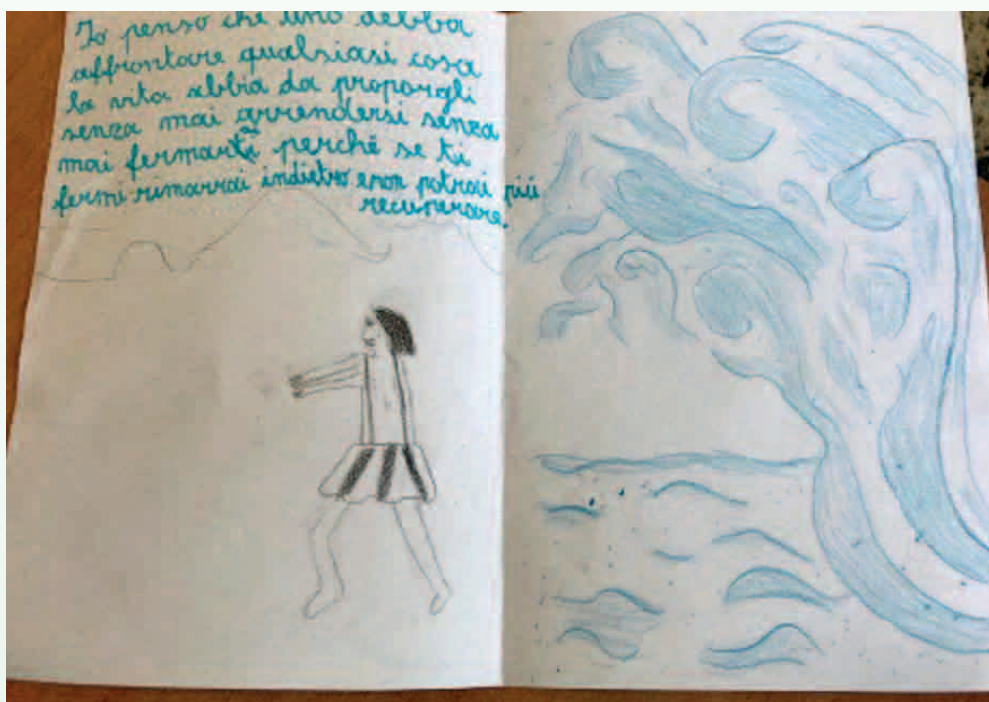 Io penso che uno debba
affrontare qualsiasi cosa
la vita abbia da proporgli
senza mai arrendersi senza
mai fermarti perché se ti
fermi rimarrai indietro e non potrai più
recuperare.